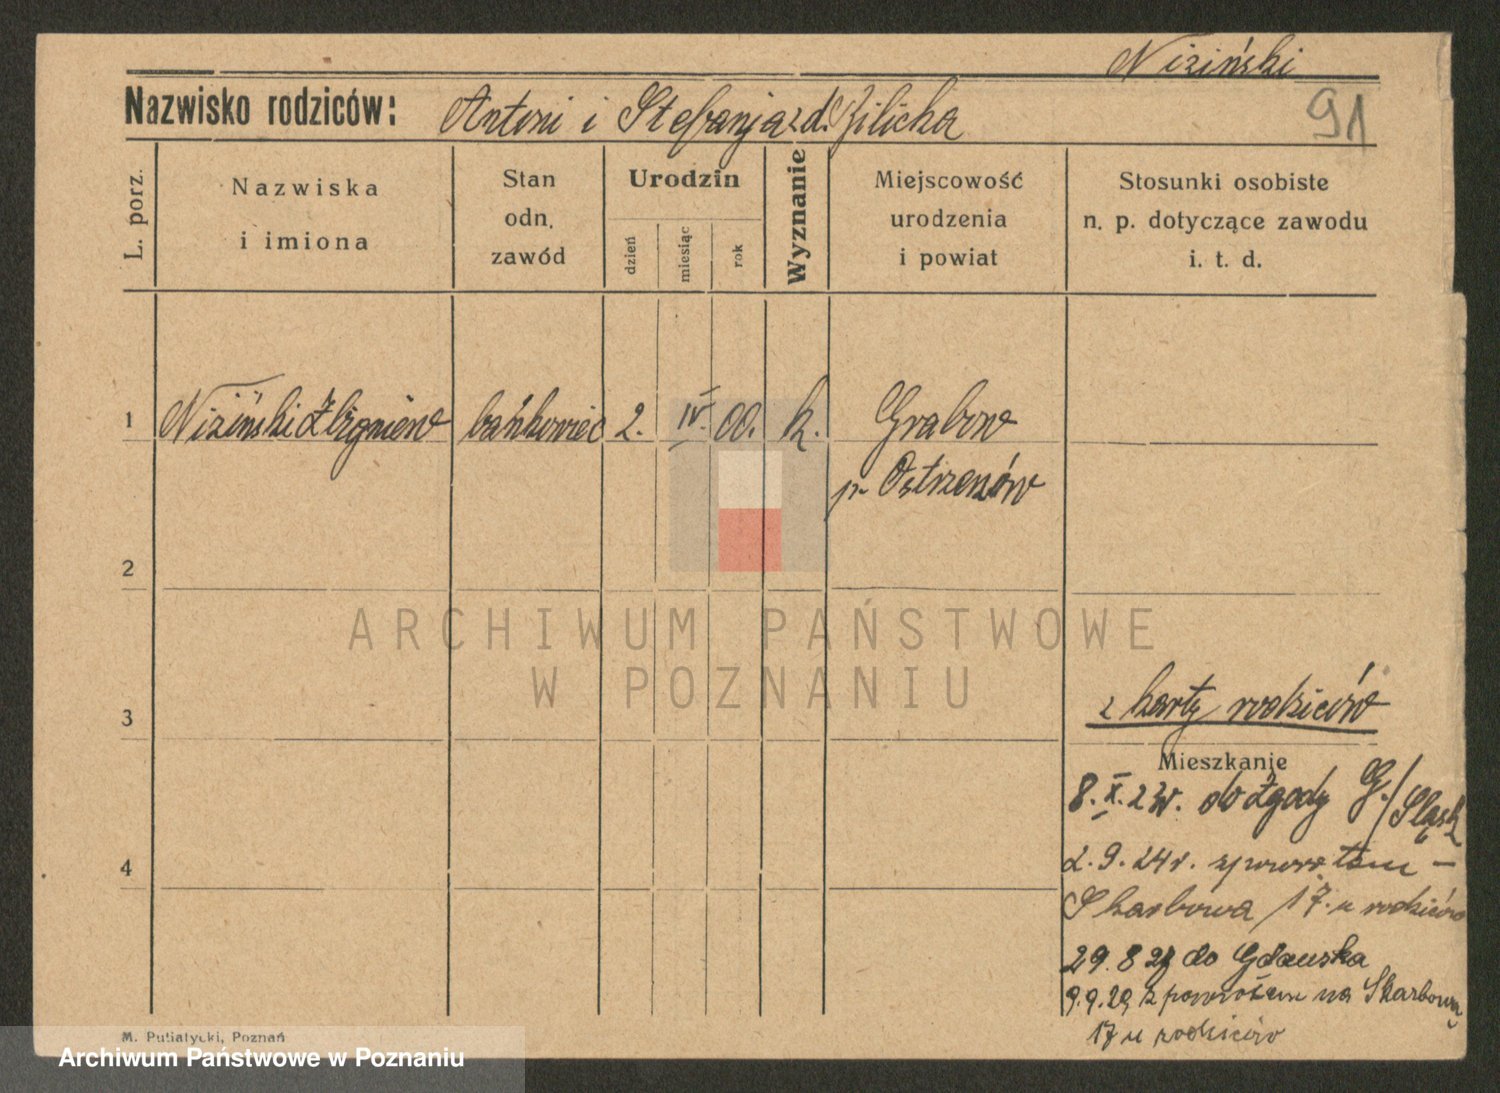 Niziński
Nazwisko rodziców: Antoni i Stefanja z d. Bilicka
91
L. porz.
Nazwiska
i imiona
Stan
odn.
zawód
Urodzin
dzień
miesiąc
rok
Wyznanie
Miejscowość
urodzenia
i powiat
Stosunki osobiste
n. p. dotyczące zawodu
i. t. d.
1 Niziński Zbigniew bańkowiec 2. IV. 00. k. Grabow
p. Ostrzeszów
2
3
4
ARCHIWUM PAŃSTWOWE
W POZNANIU
z karty rodziców
Mieszkanie
8. X. 23r. do Zgody G./Śląsk
2.9.24r. zpowrotem –
Skarbowa 17. u rodziców
29.8 29 do Gdańska
9.9.29 z powrotem na Skarbową
17 u rodziców
M. Putiatycki, Poznań
Archiwum Państwowe w Poznaniu